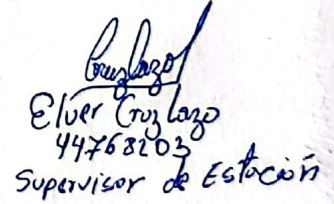 Cruz Lazo
Elver Cruz Lazo
44768203
Supervisor de Estación